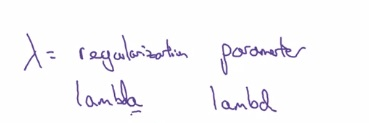 λ = regularization parameter
lambda lambd